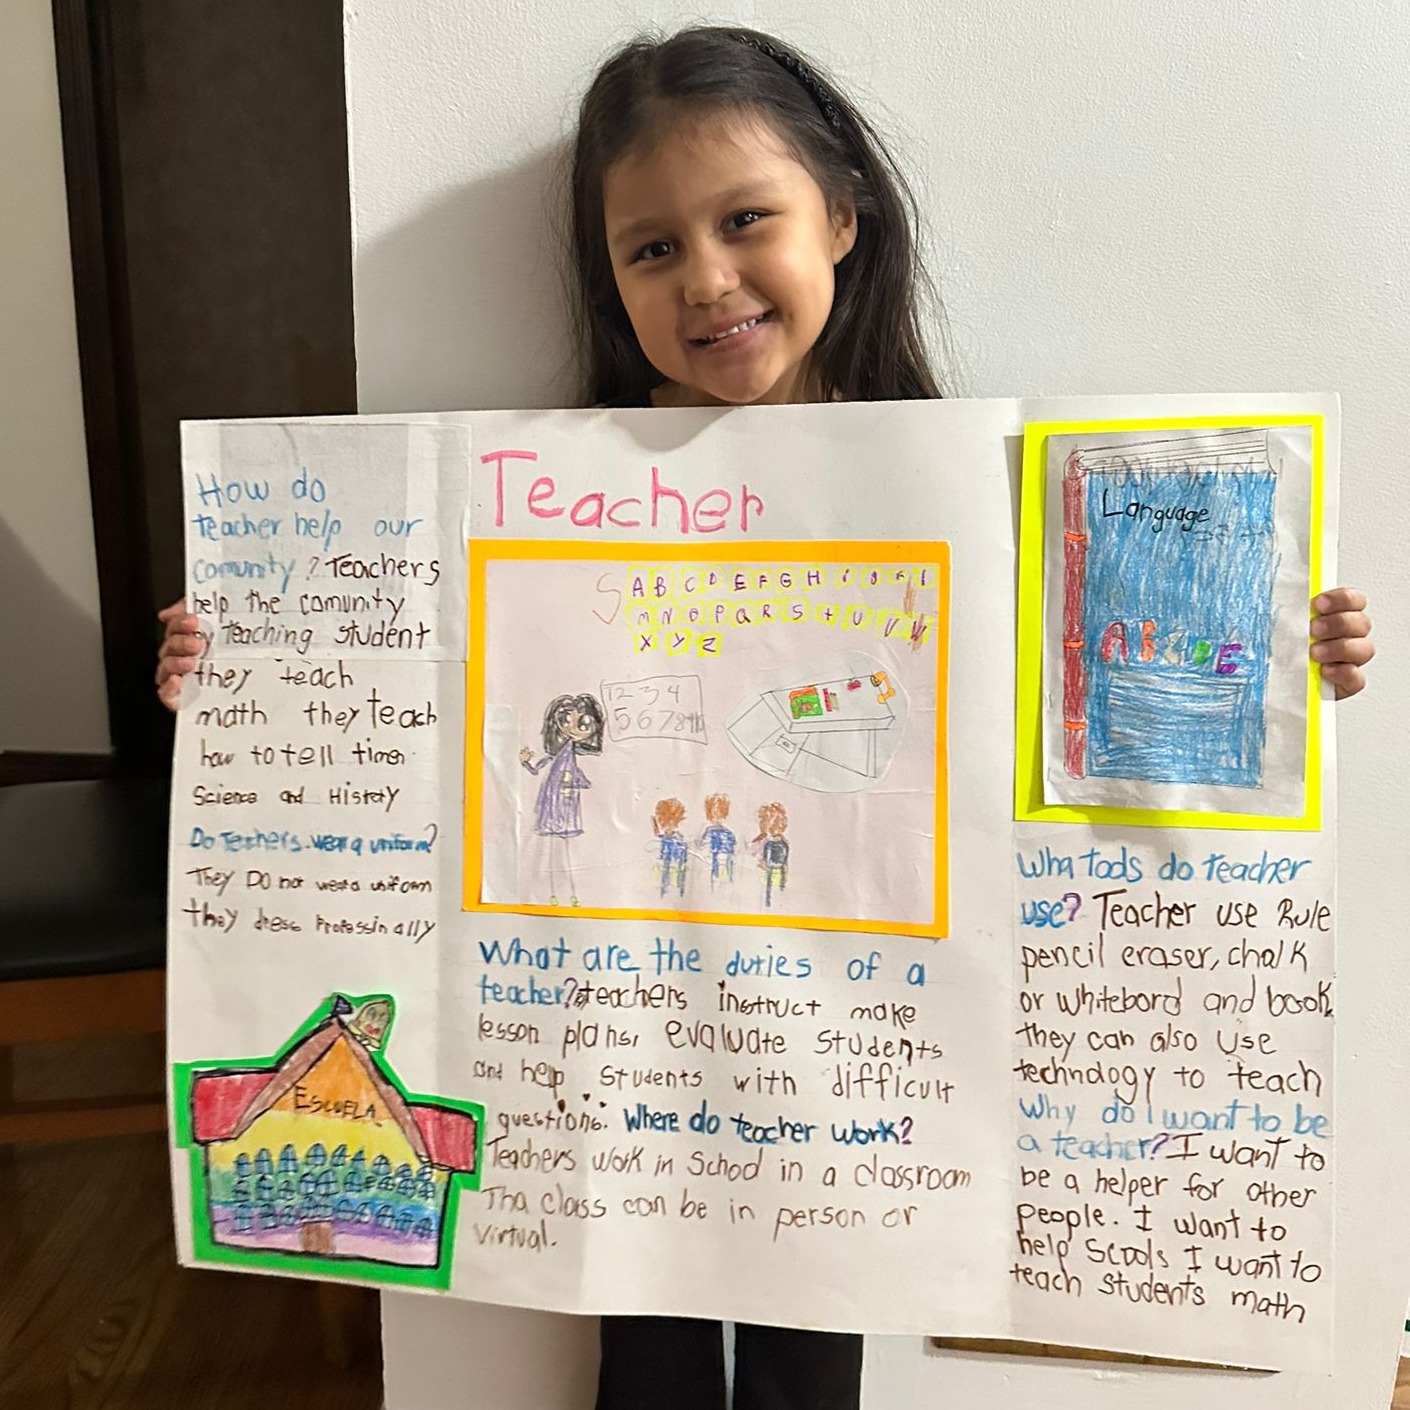 Teacher
How do
teacher help our
comunity? Teachers
help the comunity
by Teaching student
they teach
math they teach
how to tell time
Science and History
Do Teachers wear a uniform?
They DO not wear a unifom
they dress Professinally
ESCUELA
A B C D E F G H i J K l
m N O P Q R S t U V W
X Y Z
1 2 3 4
5 6 7 8 9 10
What are the duties of a
teacher? teachers instruct make
lesson plans, evaluate students
and help students with difficult
questions. Where do teacher work?
Teachers work in School in a classroom
Tha class can be in person or
virtual.
Language
A B C D E
Wha tools do teacher
use? Teacher use Rule
pencil eraser, chalk
or whitebord and book,
they can also use
technology to teach
Why do I want to be
a teacher? I want to
be a helper for other
people. I want to
help Scools I want to
teach students math